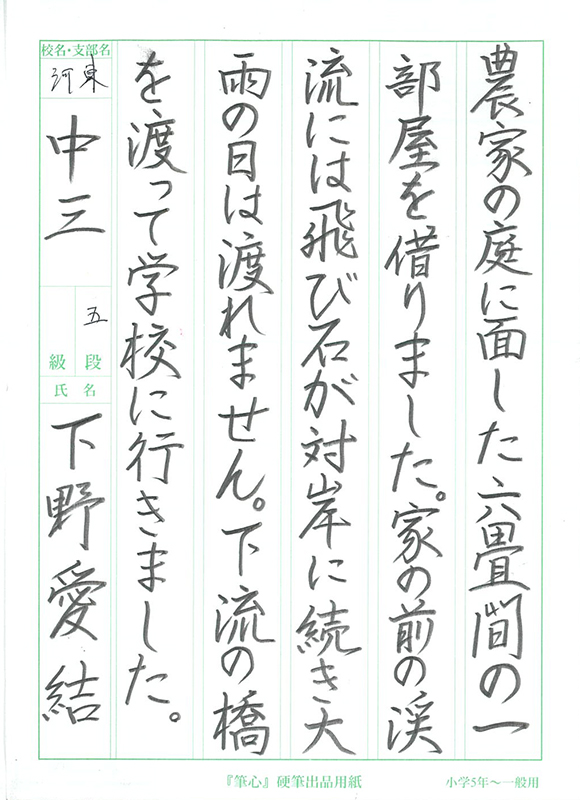 農家の庭に面した六畳間の一
部屋を借りました。家の前の渓
流には飛び石が対岸に続き大
雨の日は渡れません。下流の橋
を渡って学校に行きました。
校名・支部名
河東
中三
五
級 段
氏名
下野愛結
『筆心』硬筆出品用紙
小学5年〜一般用